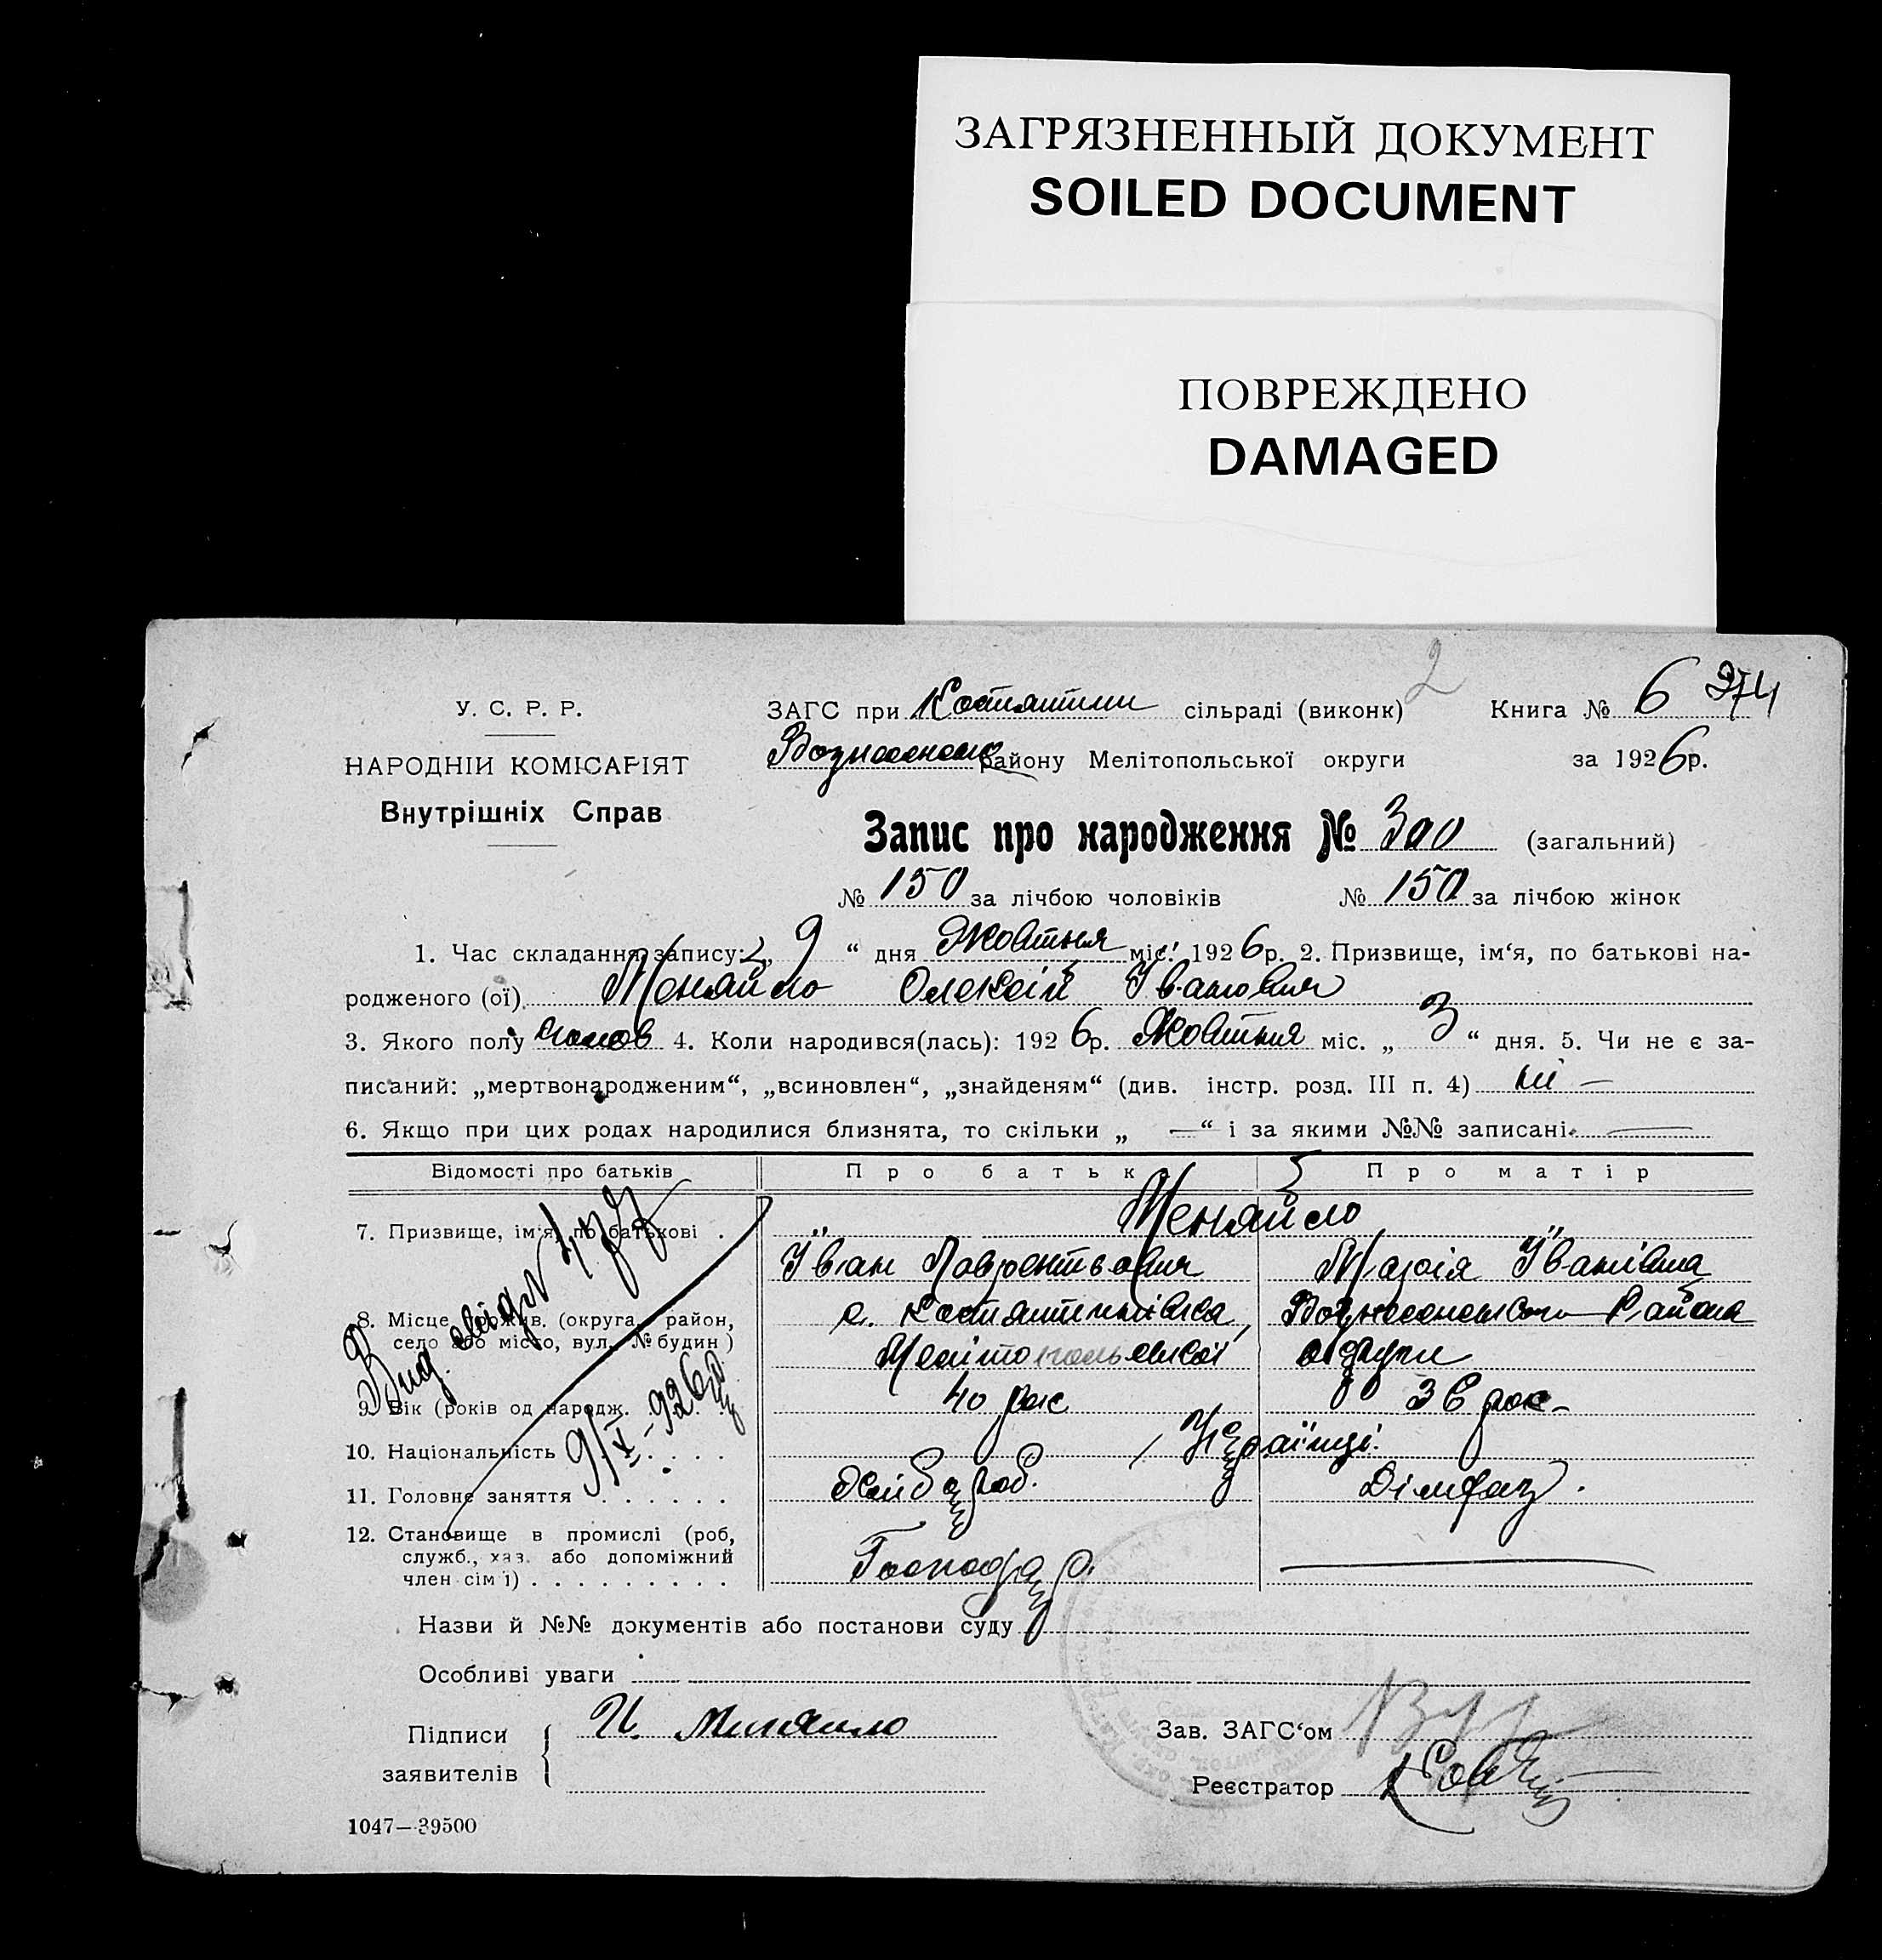 ЗАГРЯЗНЕННЫЙ ДОКУМЕНТ
SOILED DOCUMENT
ПОВРЕЖДЕНО
DAMAGED
2
У. С. Р. Р.
НАРОДНІЙ КОМІСАРІЯТ
Внутрішніх Справ
ЗАГС при Костянтин сільраді (виконк) Книга № 6 274
Вознесенськ району Мелітопольської округи за 1926р.
Запис про народження № 300 (загальний)
№ 150 за лічбою чоловіків № 150 за лічбою жінок
1. Час складання запису: „ 9 “ дня Жовтня міс. 1926р. 2. Призвище, ім‘я, по батькові на-
родженого (ої) Меняйло Олексій Іванович
3. Якого полу чолов 4. Коли народився(лась): 1926р. Жовтня міс. „ 3 “ дня. 5. Чи не є за-
писаний: „мертвонародженим“, „всиновлен“, „знайденям“ (див. інстр. розд. III п. 4) ні —
6. Якщо при цих родах народилися близнята, то скільки „ — “ і за якими №№ записані —
Відомості про батьків Про батьк Про матір
7. Призвище, ім‘я, по батькові . Меняйло
Іван Лаврентьевич Марія Іванівна
8. Місце прожив. (округа, район, село або місто, вул. № будин)
с. Костянтинівка, Вознесенського Района
Мелітопольської округи
9. Вік (років од народж. 40 рок 36 рок-
10. Національність . . . . Українці.
11. Головне заняття . . . . . . Хлібороб.
12. Становище в промислі (роб, служб., хаз. або допоміжний член сім‘ї) . . . . . . . . . Господар. —
Вид. свід №
9/X-926р
Назви й №№ документів або постанови суду
Особливі уваги
Підписи заявителів { И. Миняило
Зав. ЗАГС‘ом
Реєстратор
1047—39500